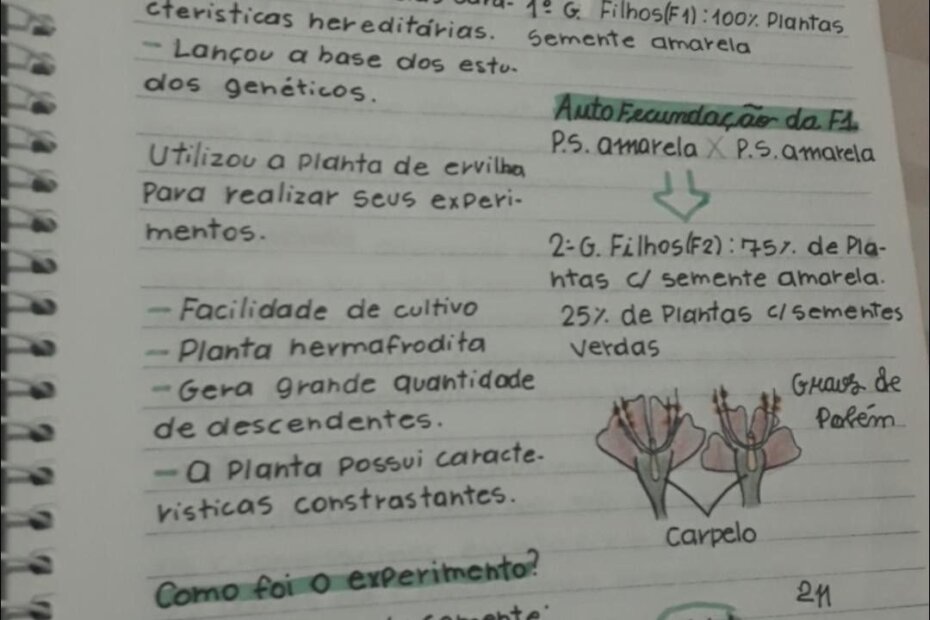 cteristicas hereditárias.
- Lançou a base dos estu-
dos genéticos.
Utilizou a Planta de ervilha
Para realizar seus experi-
mentos.
- Facilidade de cultivo
- Planta hermafrodita
- Gera grande quantidade
de descendentes.
- a Planta Possui caracte-
risticas constrastantes.
Como foi o experimento?
1º G. Filhos(F1) : 100% Plantas
semente amarela
Auto Fecundação da F1.
P.S. amarela X P.S. amarela
2º G. Filhos(F2) : 75% de Pla-
ntas c/ semente amarela.
25% de Plantas c/ sementes
verdas
Graus de
Polém
Carpelo